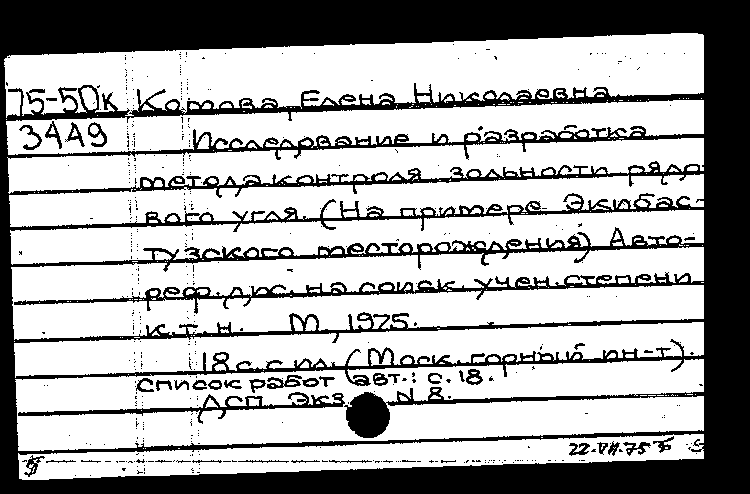 75-50к Котова, Елена Николаевна
3449 Исследование и разработка
метода контроля зольности рядо-
вого угля. (На примере Экибас-
тузского месторождения) Авто-
реф. дис. на соиск. учен. степени
к.т.н. М., 1975.
18 с. с ил. (Моск. горный ин-т).
Список работ авт.: с. 18.
ДСП. Экз. N 8.
22.VII.75